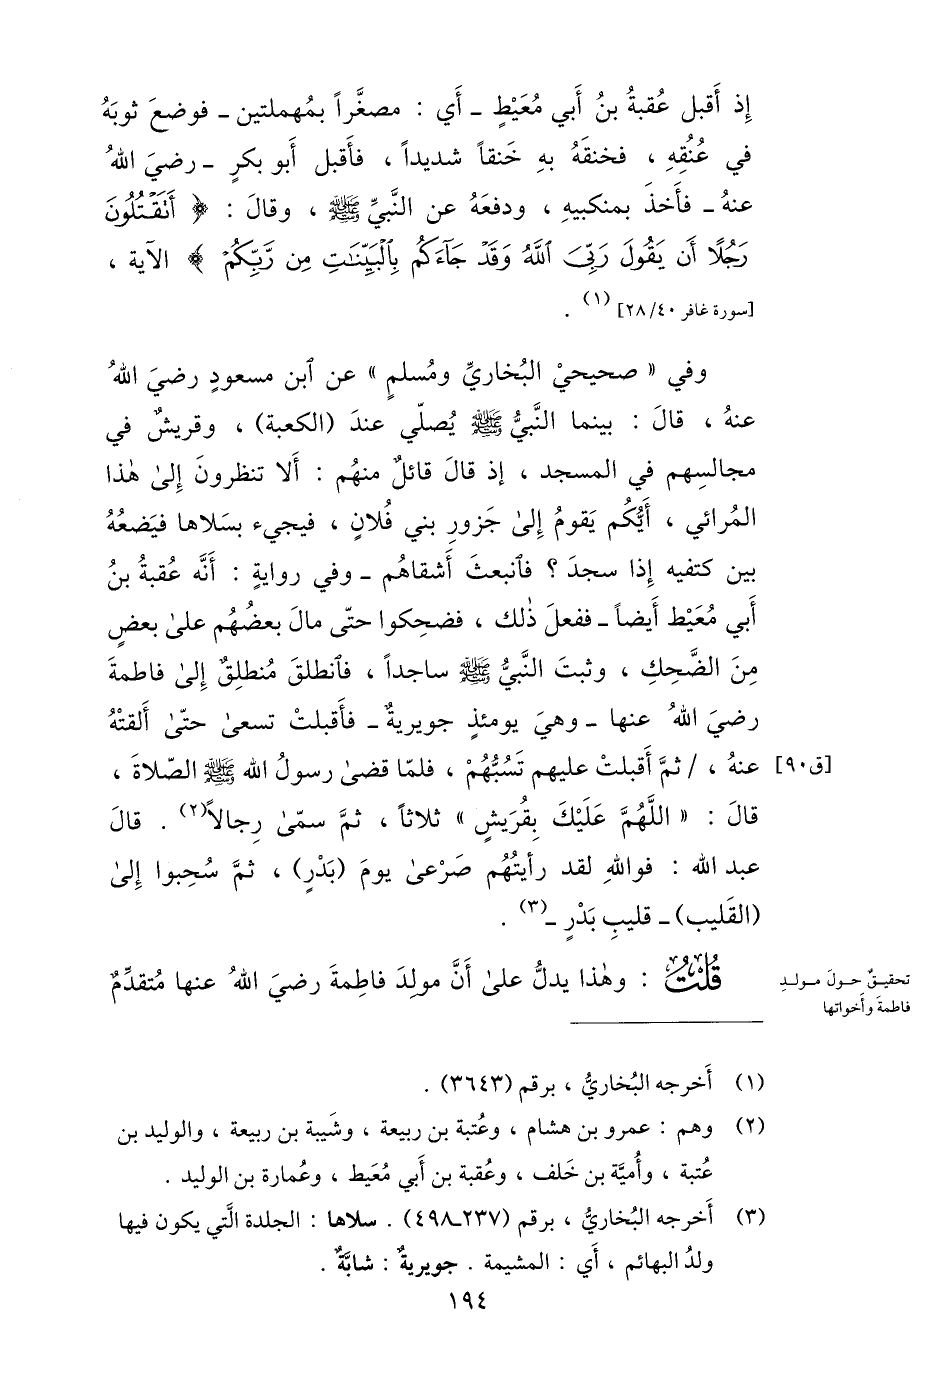 إذ أَقبل عُقبةُ بنُ أَبي مُعَيْطٍ ـ أَي : مصغَّراً بمُهملتين ـ فوضعَ ثوبَهُ
في عُنُقِهِ ، فخنقَهُ بهِ خَنقاً شديداً ، فأَقبل أَبو بكرٍ ـ رضيَ اللهُ
عنهُ ـ فأَخذَ بمنكبيهِ ، ودفعَهُ عن النَّبيِّ ﷺ ، وقالَ : ﴿ أَتَقۡتُلُونَ
رَجُلًا أَن يَقُولَ رَبِّيَ ٱللَّهُ وَقَدۡ جَآءَكُم بِٱلۡبَيِّنَٰتِ مِن رَّبِّكُمۡ ﴾ الآية ،
[سورة غافر ٤٠/٢٨] (١) .
وفي « صحيحيْ البُخاريِّ ومُسلمٍ » عن ٱبن مسعودٍ رضيَ اللهُ
عنهُ ، قالَ : بينما النَّبيُّ ﷺ يُصلّي عندَ (الكعبة) ، وقريشٌ في
مجالسِهم في المسجد ، إذ قالَ قائلٌ منهُم : أَلا تنظرونَ إِلىٰ هٰذا
المُرائي ، أَيُّكُم يَقومُ إِلىٰ جَزورِ بني فُلانٍ ، فيجيء بسَلاها فيَضعُهُ
بين كتفيه إِذا سجدَ ؟ فٱنبعثَ أَشقاهُم ـ وفي روايةٍ : أَنَّه عُقبةُ بنُ
أَبي مُعَيْط أَيضاً ـ ففعلَ ذٰلك ، فضحِكوا حتّى مالَ بعضُهُم علىٰ بعضٍ
مِنَ الضَّحِكِ ، وثبتَ النَّبيُّ ﷺ ساجداً ، فٱنطلقَ مُنطلِقٌ إِلىٰ فاطمةَ
رضيَ اللهُ عنها ـ وهيَ يومئذٍ جويريةٌ ـ فأَقبلتْ تسعىٰ حتّىٰ أَلقتْهُ
[ق٩٠] عنهُ ، / ثمَّ أَقبلتْ عليهم تَسُبُّهُمْ ، فلمّا قضىٰ رسولُ الله ﷺ الصّلاةَ ،
قالَ : « اللَّهُمَّ عَلَيْكَ بِقُرَيشٍ » ثلاثاً ، ثمَّ سمّىٰ رِجالاً(٢) . قالَ
عبد الله : فواللهِ لقد رأيتُهُم صَرْعىٰ يومَ (بَدْرٍ) ، ثمَّ سُحِبوا إِلىٰ
(القَليب) ـ قليبِ بَدْرٍ ـ(٣) .
قُلْتُ : وهٰذا يدلُّ علىٰ أَنَّ مولِدَ فاطِمةَ رضيَ اللهُ عنها مُتقدِّمٌ
تحقيـقٌ حـولَ مـولـدِ
فاطمةَ وأخواتها
(١) أَخرجه البُخاريُّ ، برقم (٣٦٤٣) .
(٢) وهم : عمرو بن هشام ، وعُتبة بن ربيعة ، وشَيبة بن ربيعة ، والوليد بن
عُتبة ، وأُميَّة بن خَلف ، وعُقبة بن أَبي مُعَيط ، وعُمارة بن الوليد .
(٣) أَخرجه البُخاريُّ ، برقم (٢٣٧ـ٤٩٨) . سلاها : الجلدة الَّتي يكون فيها
ولدُ البهائم ، أَي : المشيمة . جويريةٌ : شابَّةٌ .
١٩٤